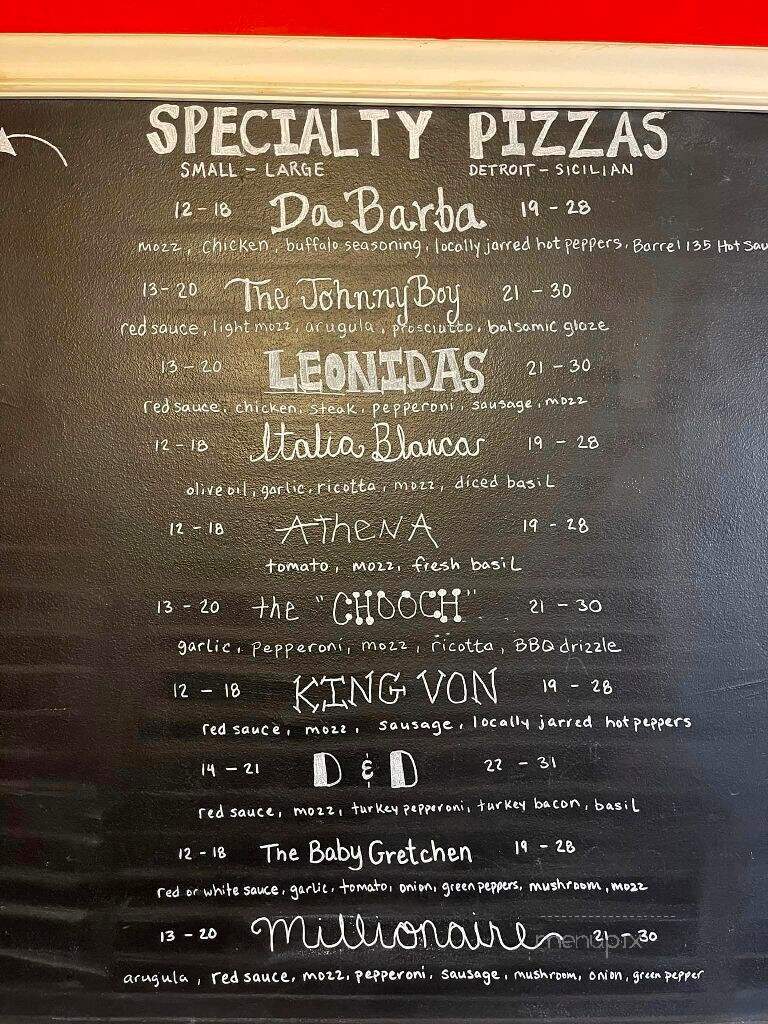 SPECIALTY PIZZAS
SMALL - LARGE DETROIT - SICILIAN
12 - 18 Da Barba 19 - 28
mozz, chicken, buffalo seasoning, locally jarred hot peppers, Barrel 135 Hot Sau
13 - 20 The JohnnyBoy 21 - 30
red sauce, light mozz, arugula, prosciutto, balsamic glaze
13 - 20 LEONIDAS 21 - 30
red sauce, chicken, steak, pepperoni, sausage, mozz
12 - 18 Italia Blanca 19 - 28
olive oil, garlic, ricotta, mozz, diced basil
12 - 18 AThENA 19 - 28
tomato, mozz, fresh basil
13 - 20 the "CHOOCH" 21 - 30
garlic, pepperoni, mozz, ricotta, BBQ drizzle
12 - 18 KING VON 19 - 28
red sauce, mozz, sausage, locally jarred hot peppers
14 - 21 D & D 22 - 31
red sauce, mozz, turkey pepperoni, turkey bacon, basil
12 - 18 The Baby Gretchen 19 - 28
red or white sauce, garlic, tomato, onion, green peppers, mushroom, mozz
13 - 20 Millionaire 21 - 30
menupix
arugula, red sauce, mozz, pepperoni, sausage, mushroom, onion, green pepper